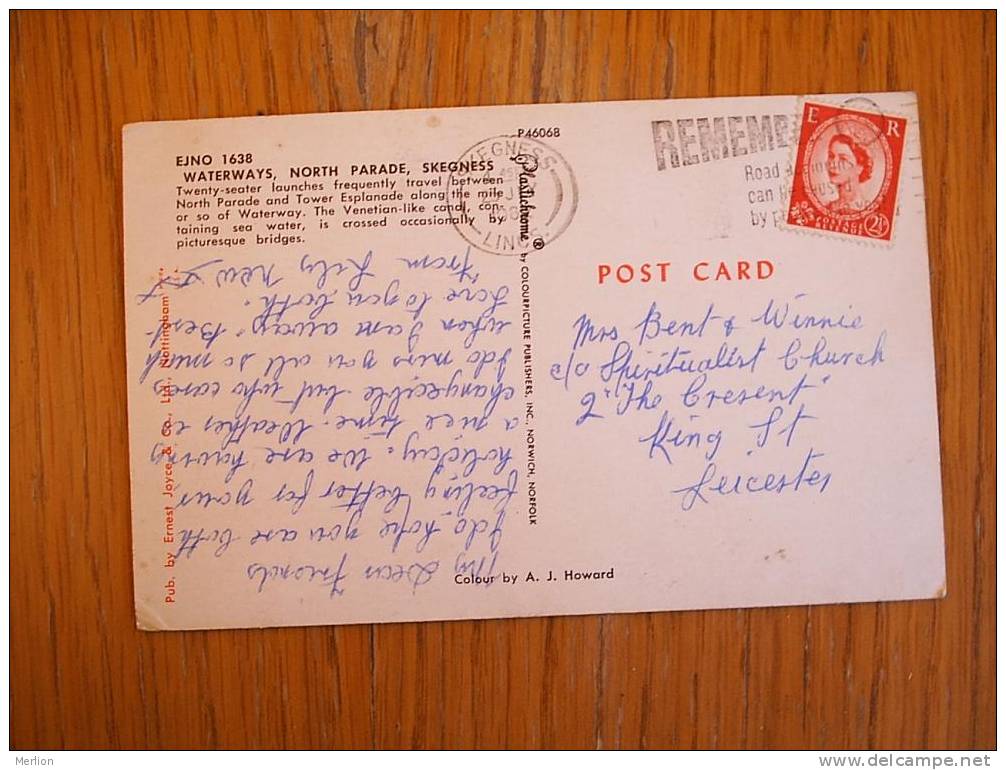 EJNO 1638
WATERWAYS, NORTH PARADE, SKEGNESS
Twenty-seater launches frequently travel between
North Parade and Tower Esplanade along the mile
or so of Waterway. The Venetian-like canal, con-
taining sea water, is crossed occasionally by
picturesque bridges.
My Dear Friends
I do hope you are both
feeling better for your
holiday. We are having
a nice time. Weather is
changeable but who cares
I do miss you all so much
when I am away. Best
Love to you both.
From Lily New
Pub. by Ernest Joyce & Co., Ltd., Nottingham
P46068
Plastichrome ® by COLOURPICTURE PUBLISHERS, INC., NORWICH, NORFOLK
Colour by A. J. Howard
SKEGNESS
LINCS.
REMEMB
Road
can
by
E R
POSTAGE
REVENUE
2½
POST CARD
Mrs Bent & Winnie
c/o Spiritualist Church
2 "The Cresent"
King St
Leicester
Merlion
delcampe.net